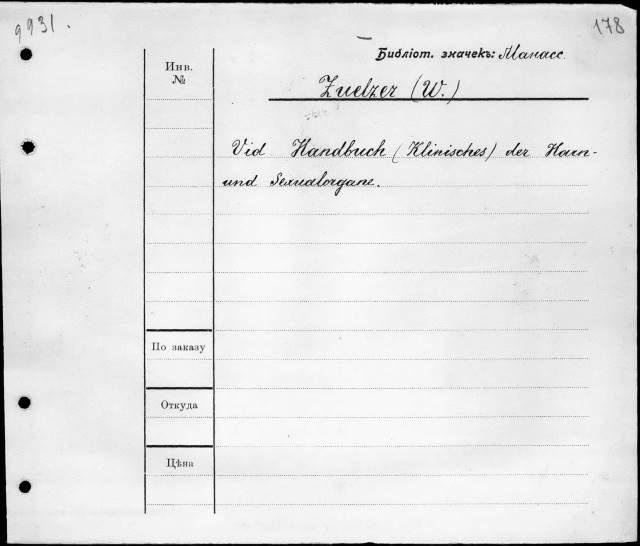 9931.
178
Библіот. значекъ: Манасс.
Инв.
№
Zuelzer (W.)
Vid Handbuch (Klinisches) der Harn-
und Sexualorgane.
По заказу
Откуда
Цѣна